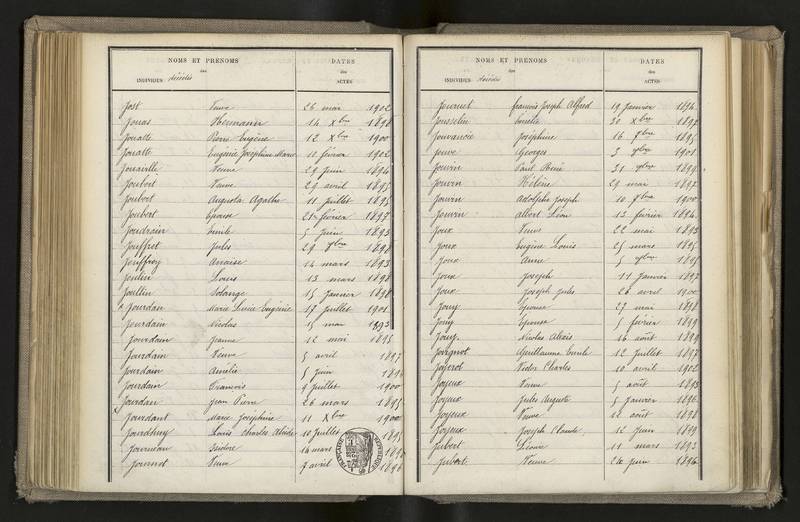 NOMS ET PRÉNOMS
des
INDIVIDUS décédés
DATES
des
ACTES
Jost Veuve 26 mai 1902
Jouas Hermann 14 Xbre 1898
Jouatte Pierre Eugène 12 Xbre 1900
Jouatte Eugénie Joséphine Marie 10 février 1902
Jouaville Veuve 29 juin 1894
Joubert Veuve 29 avril 1895
Joubert Augusta Agathe 11 juillet 1895
Joubert Epouse 21 février 1897
Joudrain Emile 5 juin 1893
Jouffret Jules 29 1898
Jouffroy 14 mars 1893
Joulin Louis 13 mars 1898
Joullin Solange 15 janvier 1898
Jourdain Marie Louise Eugénie 17 juillet 1901
Jourdain Nicolas 15 mai 1893
Jourdain Jeanne 12 mai 1895
Jourdain Veuve 5 avril 1897
Jourdain Amélie 5 juin
Jourdain Francois 9 juillet 1900
Jourdan Jean Pierre 26 mars 1895
Jourdant Marie Joséphine 11 Xbre 1900
Louis Charles 10 juillet 1895
Journeau Isidore 14 mars
Journet Veuve 7 avril 1896
NOMS ET PRÉNOMS
des
INDIVIDUS décédés
DATES
des
ACTES
Journet francois Joseph Alfred 19 janvier 1894
Jousselin 30 Xbre 1897
Jouvancie Joséphine 16 1895
Jouve Georges 3 1901
Jouvin Paul René 31 1899
Jouvin Hélène 29 mai 1897
Jouvin Adolphe Joseph 10 1900
Jouvin Albert Léon 13 février 1894
Joux Veuve 22 mai 1893
Joux Eugène Louis 25 mars 1895
Joux Anne 5 1895
Joux Joseph 11 janvier 1897
Joux Joseph Jules 26 avril 1900
Jouy Epouse 27 mai 1898
Jouy Epouse 5 février 1899
Jouy Nicolas Alexis 16 août 1899
Guillaume Emile 12 juillet 1897
Victor Charles 10 avril 1902
Joyeux Veuve 5 août 1895
Joyeux Jules Auguste 5 janvier 1896
Joyeux Veuve 12 août 1898
Joyeux Joseph Claude 12 juin 1899
Jubert 11 mars 1893
Jubert Veuve 26 juin 1894